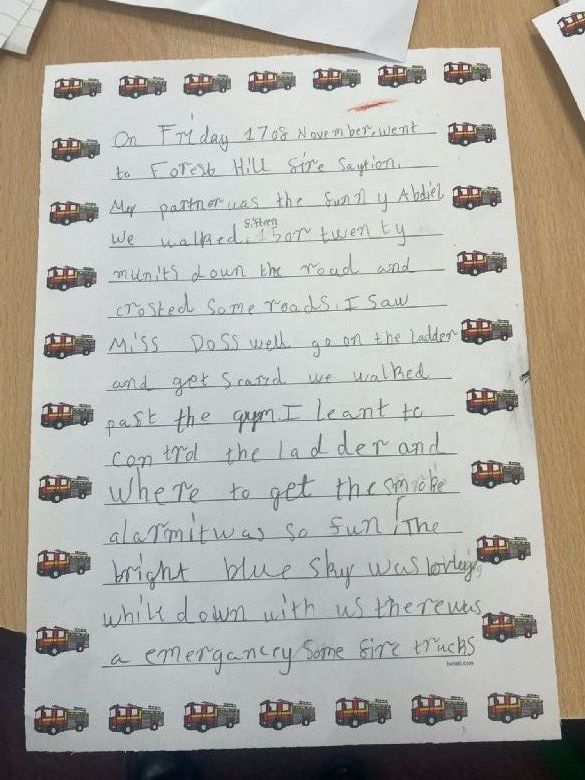 On Friday 17of November, went
to Forest Hill fire Saytion.
My partner was the funny Abdiel
fifteen
We walked 15 or twenty
munits down the road and
crosted some roads. I saw
Miss Doss well go on the ladder
and get scared we walked
past the gym. I leant to
control the ladder and
where to get the smoke
alarm it was so fun! The
bright blue sky was
while down with us there was
a emergancey some fire trucks